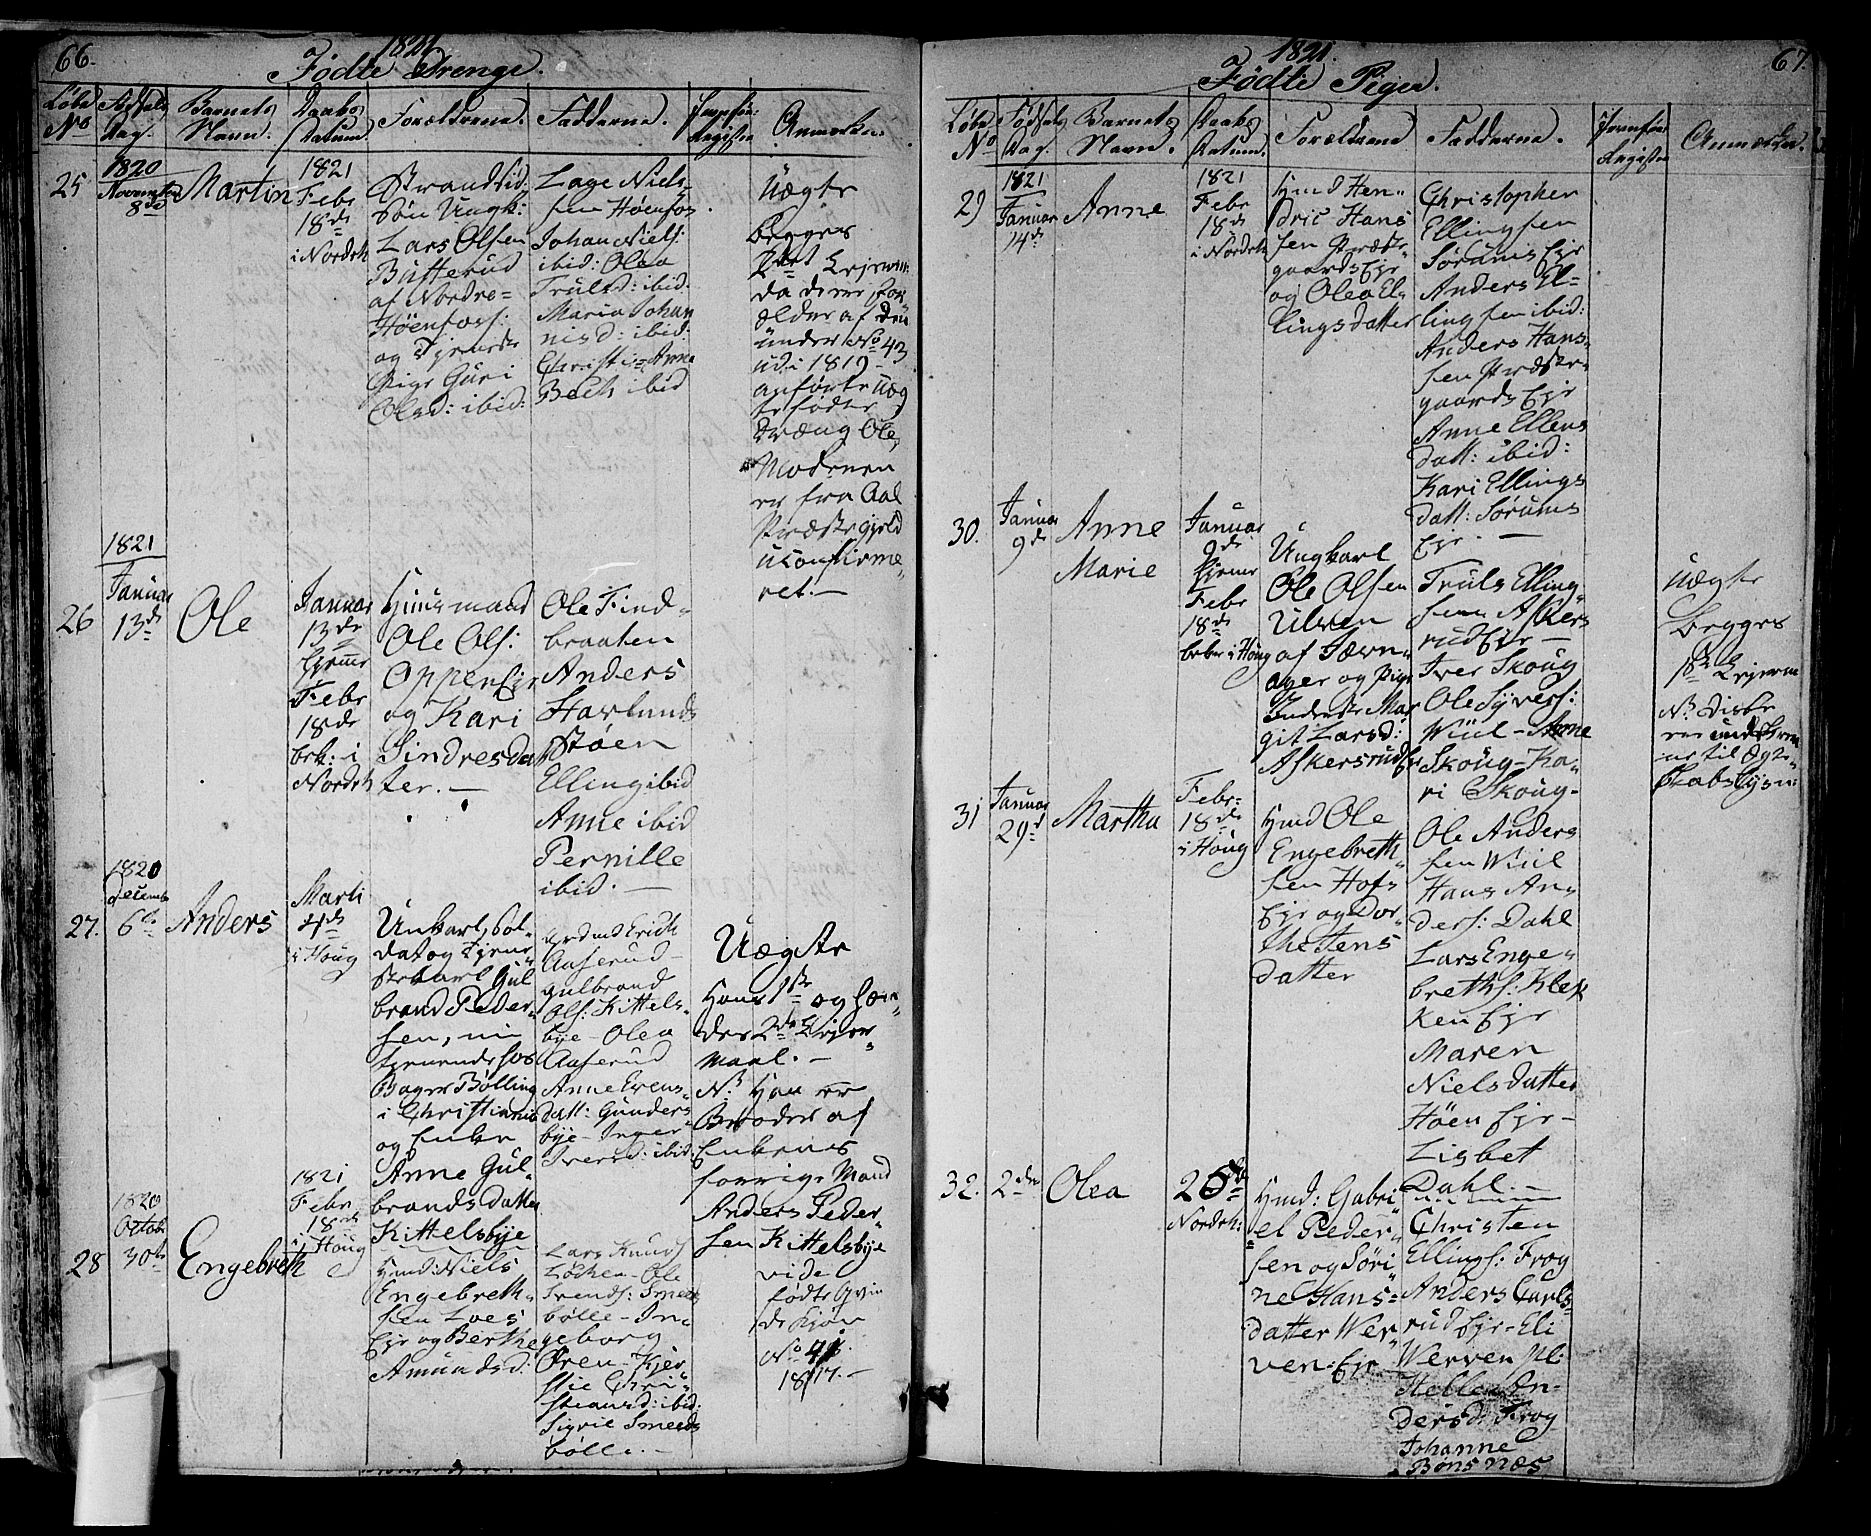 66.
1821
Fødte Drenge.
Løbe No
Fødsels Dag.
Barnets Navn.
Daabs Datum.
Forældrene.
Fadderne.
Anmærkn:
25
1820
November
8de
Martin
1821
Febr
18de
i Nordrh
Strandsid
Søn Ungk:
Lars Olsen
Butterud
af Nordre=
Høenfoss:
og Tjeneste
Pige Guri
Olsd: ibid:
Lage Niels-
sen Høenfos
Johan Niels:
ibid: Olea
Trulsd: ibid.
Maria Johan
nisd: ibid:
Christi=Anna
Bech ibid
Uægte
Begges
2det Lejerm:
da de ere For
ælder af den
under No 43
udi 1819
anførte uæg
te fødte
Dræng Ole,
Moderen
er fra Aal
Præstegjeld
uconfirme„
ret. —
26
1821
Januar
13de
Ole
Januar
13de
hjemme
Febr
18de
bek: i
Nordrh
Huusmand
Ole Ols:
Oppen Ejr
og Kari
Sindresdat
ter. —
Ole Find-
braaten
Anders
Harlunds
Støen
Elling ibid
Anne ibid
Pernille
ibid. —
27.
1820
Decemb
6te
Anders
Marti
4de
i Houg
Unkarl, Sol-
dat og Tjene-
stekarl Gul
brand Peder-
sen, nu
tjenende hos
Bager Bølling
i Christiania
og Enken
Anne Gul-
brandsdatter
Kittelsbye
Grdmd Erich
Aaserud
Gulbrand
Ols: Kittels-
bye - Olea
Aaserud
Anne Evens-
datt: Gunders
bye - Inger
Iversd: ibid:
Uægte
Hans 1ste og hen-
des 2det Lejer-
maal. —
NB Han er
Broder af
Enkens
forrige Mand
Anders Peder
sen Kittelsbye
vide
fødte Qvin
de Kjøn
No 41
1817. —
28
1820
Octob
30te
Engebreth
1821
Febr
18de
i Houg
Hmd: Niels
Engebreth-
sen Loes
Ejr og Berthe
Amundsd:
Lars Knuds
Løken - Ole
Trends: Smeds
bølle - In-
geborg
Øren - Kjer
stie Chri
stiansd: ibid:
Sigrie Smeeds
bølle. —
67.
1821.
Fødte Piger.
Løbe No
Fødsels Dag.
Barnets Navn.
Daabs Datum.
Forældrene
Fadderne.
Anmærkn.
29
1821
Januar
14de
Anne
1821
Febr
18de
i Nordrh
Hmd Hen-
dric Hans
sen Præste-
gaards Ejr
og Olea El-
lingsdatter
Christopher
Ellingsen
Sørums Ejr
Anders El-
lingsen ibid:
Anders Hans-
sen Præste-
gaards Ejr
Anne Ellens
datt: ibid:
Kari Ellings
datt: Sørums
Ejr. —
30.
Januar
9de
Anne
Marie
Januar
9de
hjeme
Febr
18de
bek i Houg
Ungkarl
Ole Olsen
Ulven
af Jævn-
ager og Pige
Indeste Mar
git Larsd:
Askersrud Ejr
Truls Elling-
sen Askers
rud Ejr —
Iver Skoug
Ole Syvers:
Wiul - Anne
Skoug - Ka-
ri Skoug-
Uægte
Begges
1ste Lejerm
NB Disse
ere
til Ægte-
skabs Lysn:
31
Januar
29de
Martha
Febr-
18de
i Houg
Hmd Ole
Engebreth-
sen Hofs
Ejr og Dor-
the Jens
datter
Ole Anders
sen Wiul
Hans An-
ders: Dahl
Lars Enge-
breths: Klek
ken Ejr
Maren
Nielsdatter
Høen Ejr-
Lisbet
Dahl. —
32.
2den
Olea
25de
Nordrh:
Hmd: Gabri
el Peder-
sen og Søri
ne Hans=
datter Wer
ven-Ejr
Christen
Ellings: Frog
Anders Carls-
rud Ejr - Eli
Werven
Hellen An-
dersd: Frog
Johanne
Bønsnæs